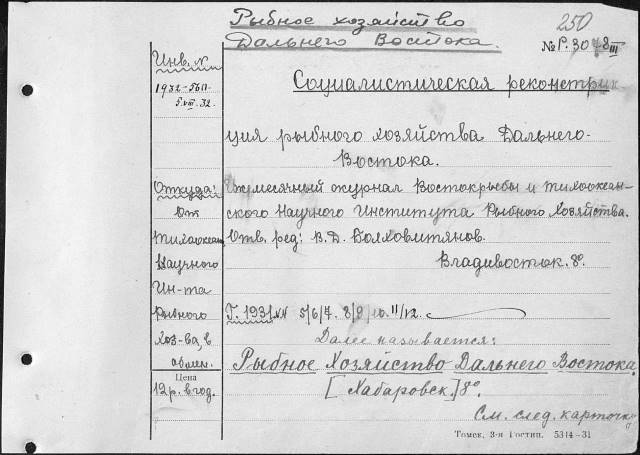 Рыбное хозяйство
Дальнего Востока.
250
№ Р. 3078 III
Инв. №
1932-5611
5.VIII.32.
Социалистическая реконструк
ция рыбного хозяйства Дальнего-
Востока.
Откуда:
От
Тихоокеан.
Научного
Ин-та
Рыбного
Хоз-ва, в
обмен.
Цена
12 р. в год.
Ежемесячный журнал Востокрыбы и Тихоокеан-
ского Научного Института Рыбного Хозяйства.
Отв. ред: В. Д. Болховитянов.
Владивосток. 8º.
Г. 1931 №№ 5/6/7. 8/9/10. 11/12.
Далее называется:
Рыбное Хозяйство Дальнего Востока.
[Хабаровск.] 8º
См. след. карточку
Томск, 3-я Гостип. 5314-31